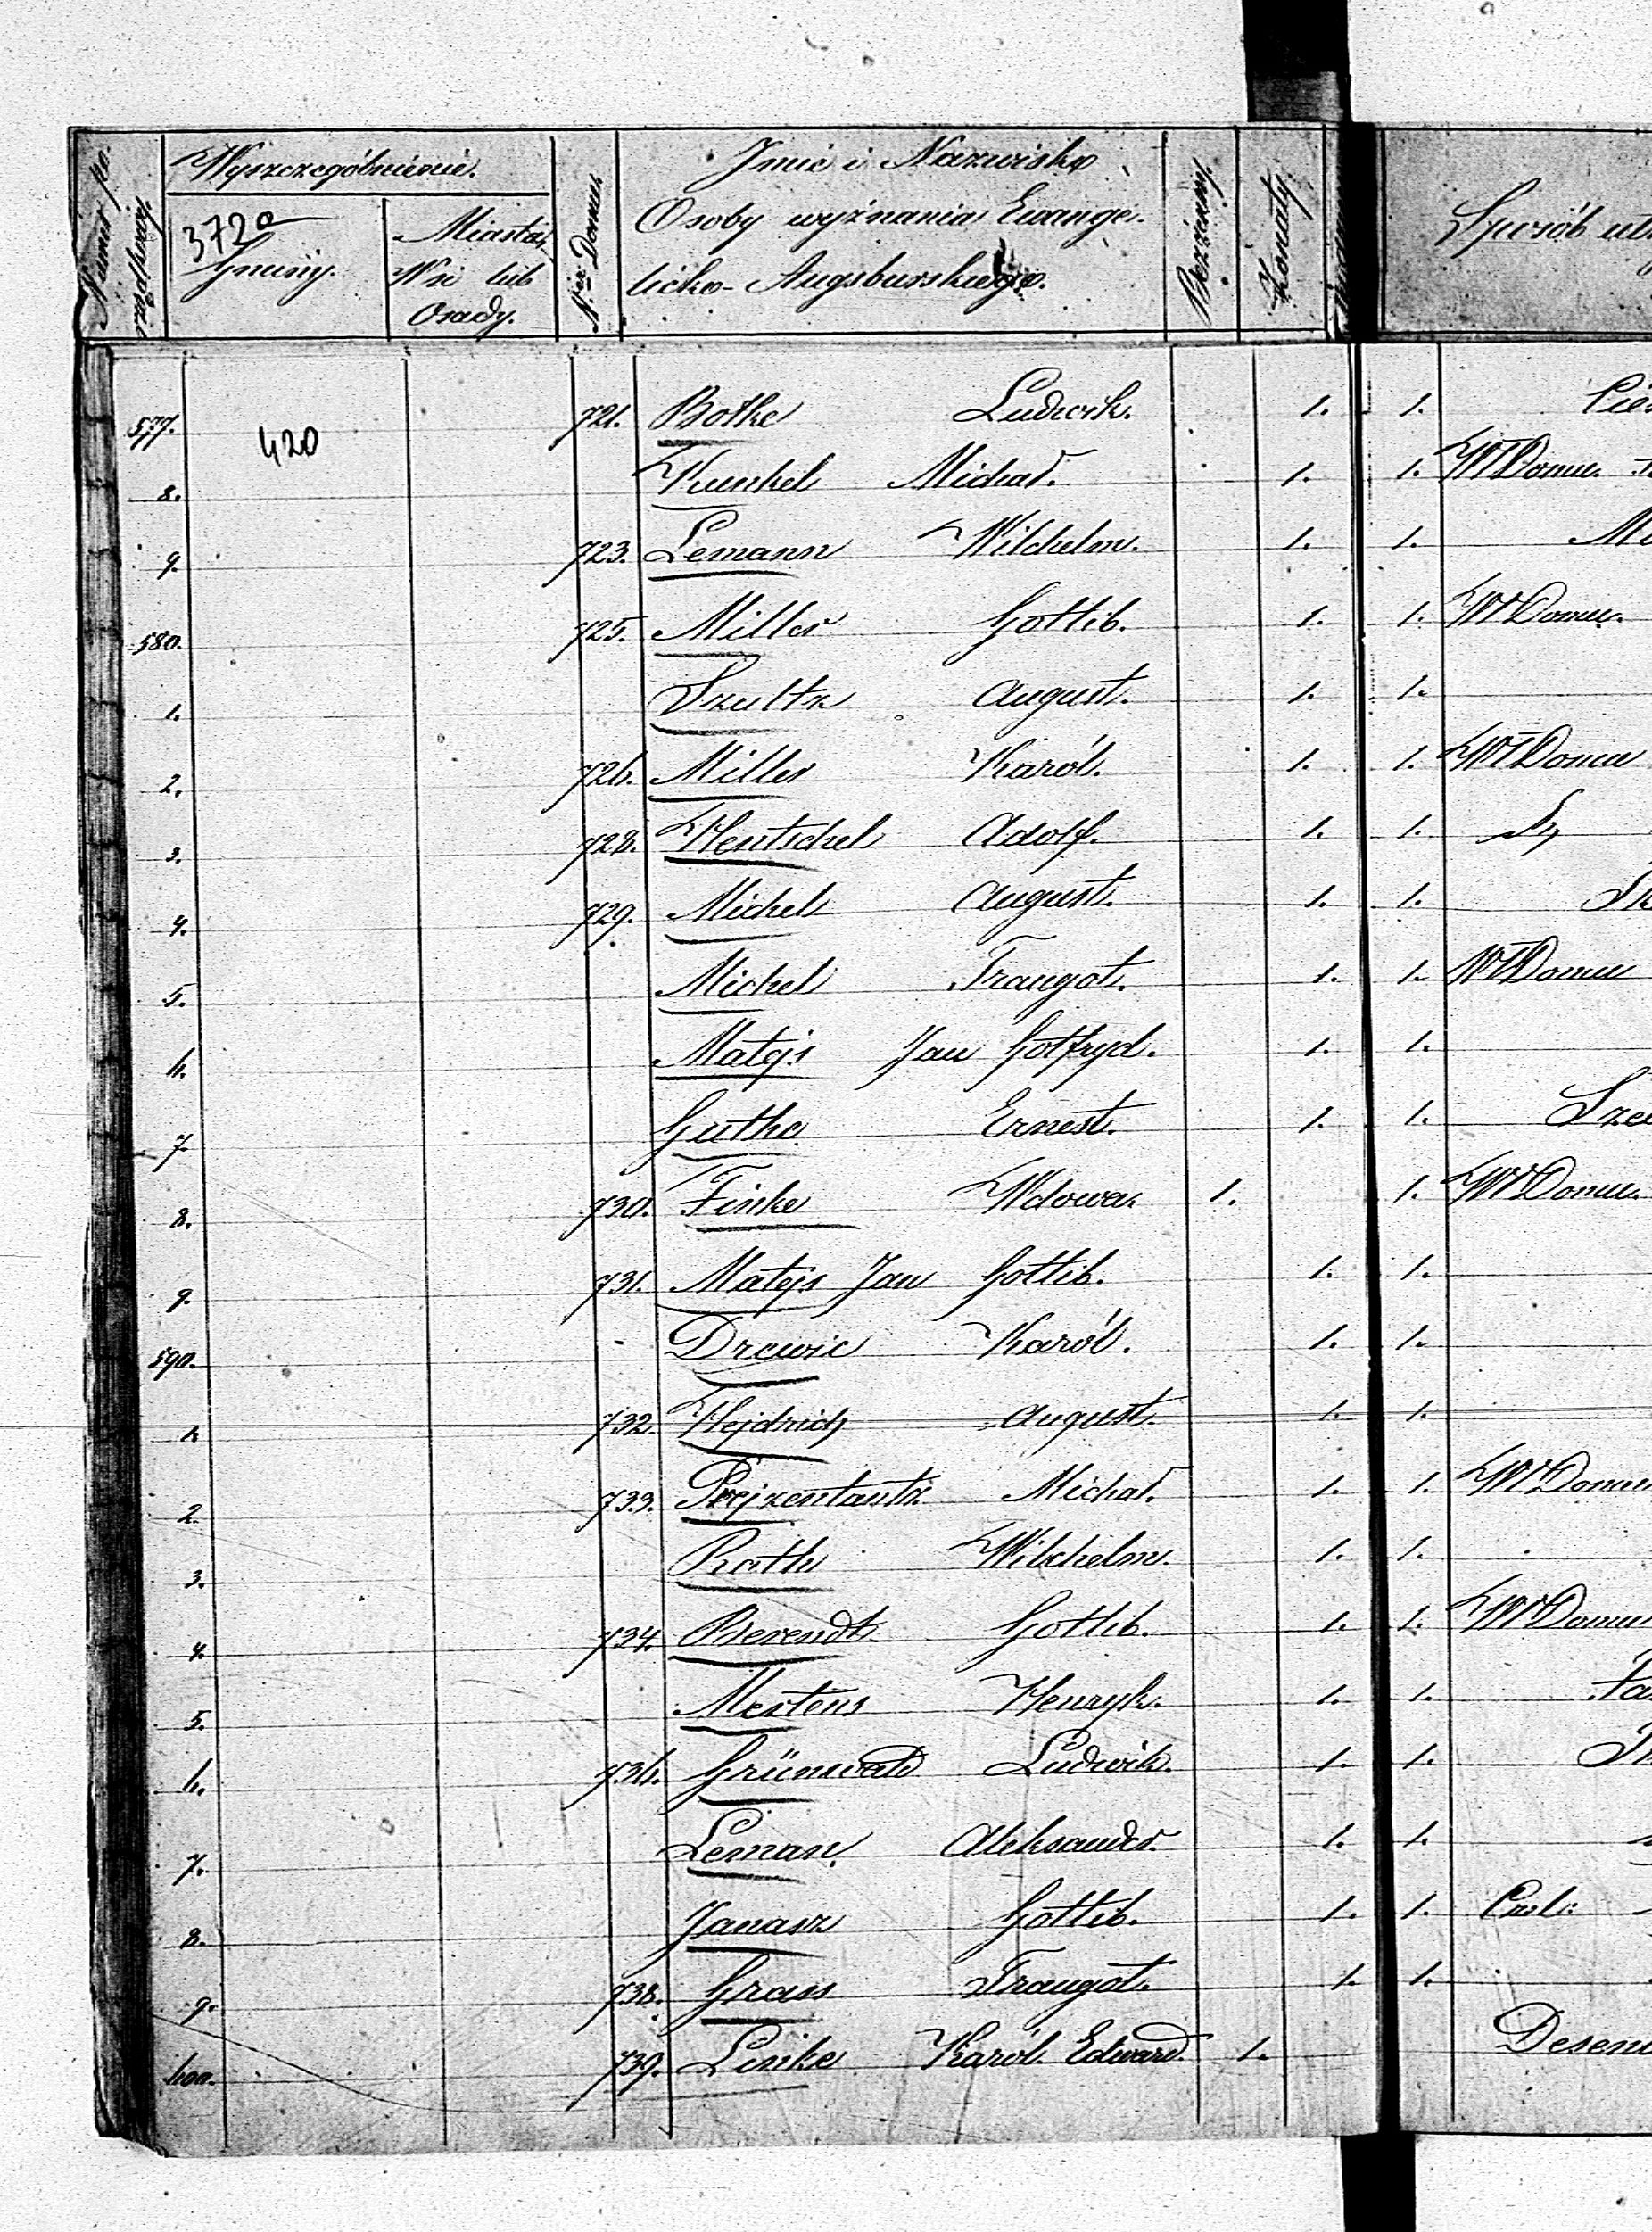 Numer po-
rządkowy.
Wyszczególnienie.
372a
Gminy.
Miasta,
Wsi lub
Osady.
N.er Domu.
Imie i Nazwisko
Osoby wyznania Ewange-
licko-Augsburskiego.
Bezżenny.
Żonaty.
Sposób
577. 420 721. Botke Ludwik. 1. 1.
8. Kunkel Michał. 1. 1. W Domu
9. 723. Lemann Wilchelm. 1. 1.
580. 725. Miller Gottlib. 1. 1. W Domu.
1. Szultz August. 1. 1.
2. 726. Miller Karól. 1. 1. W Domu
3. 728. Hentschel Adolf. 1. 1.
4. 729. Michel August. 1. 1.
5. Michel Traugot. 1. 1. W Domu
6. Matejs Jan Gotfryd. 1. 1.
7. Guthe Ernest. 1. 1.
8. 730. Finke Wdowa. 1. 1. W Domu.
9. 731. Matejs Jan Gottlib. 1. 1.
590. - Drewic Karól. 1. 1.
1. 732. Hejdrich August. 1. 1.
2. 733. Pejzentantz Michał. 1. 1. W Domu
3. Rath Wilchelm. 1. 1.
4. 734. Berendt Gottlib. 1. 1. W Domu
5. Mertens Henryk. 1. 1.
6. 736. Grünwald Ludwik. 1. 1.
7. Leman Aleksander. 1. 1.
8. Janasz Gottlib. 1. 1.
9. 738. Grass Traugot. 1. 1.
600. 739. Linke Karól Edward. 1. Desen